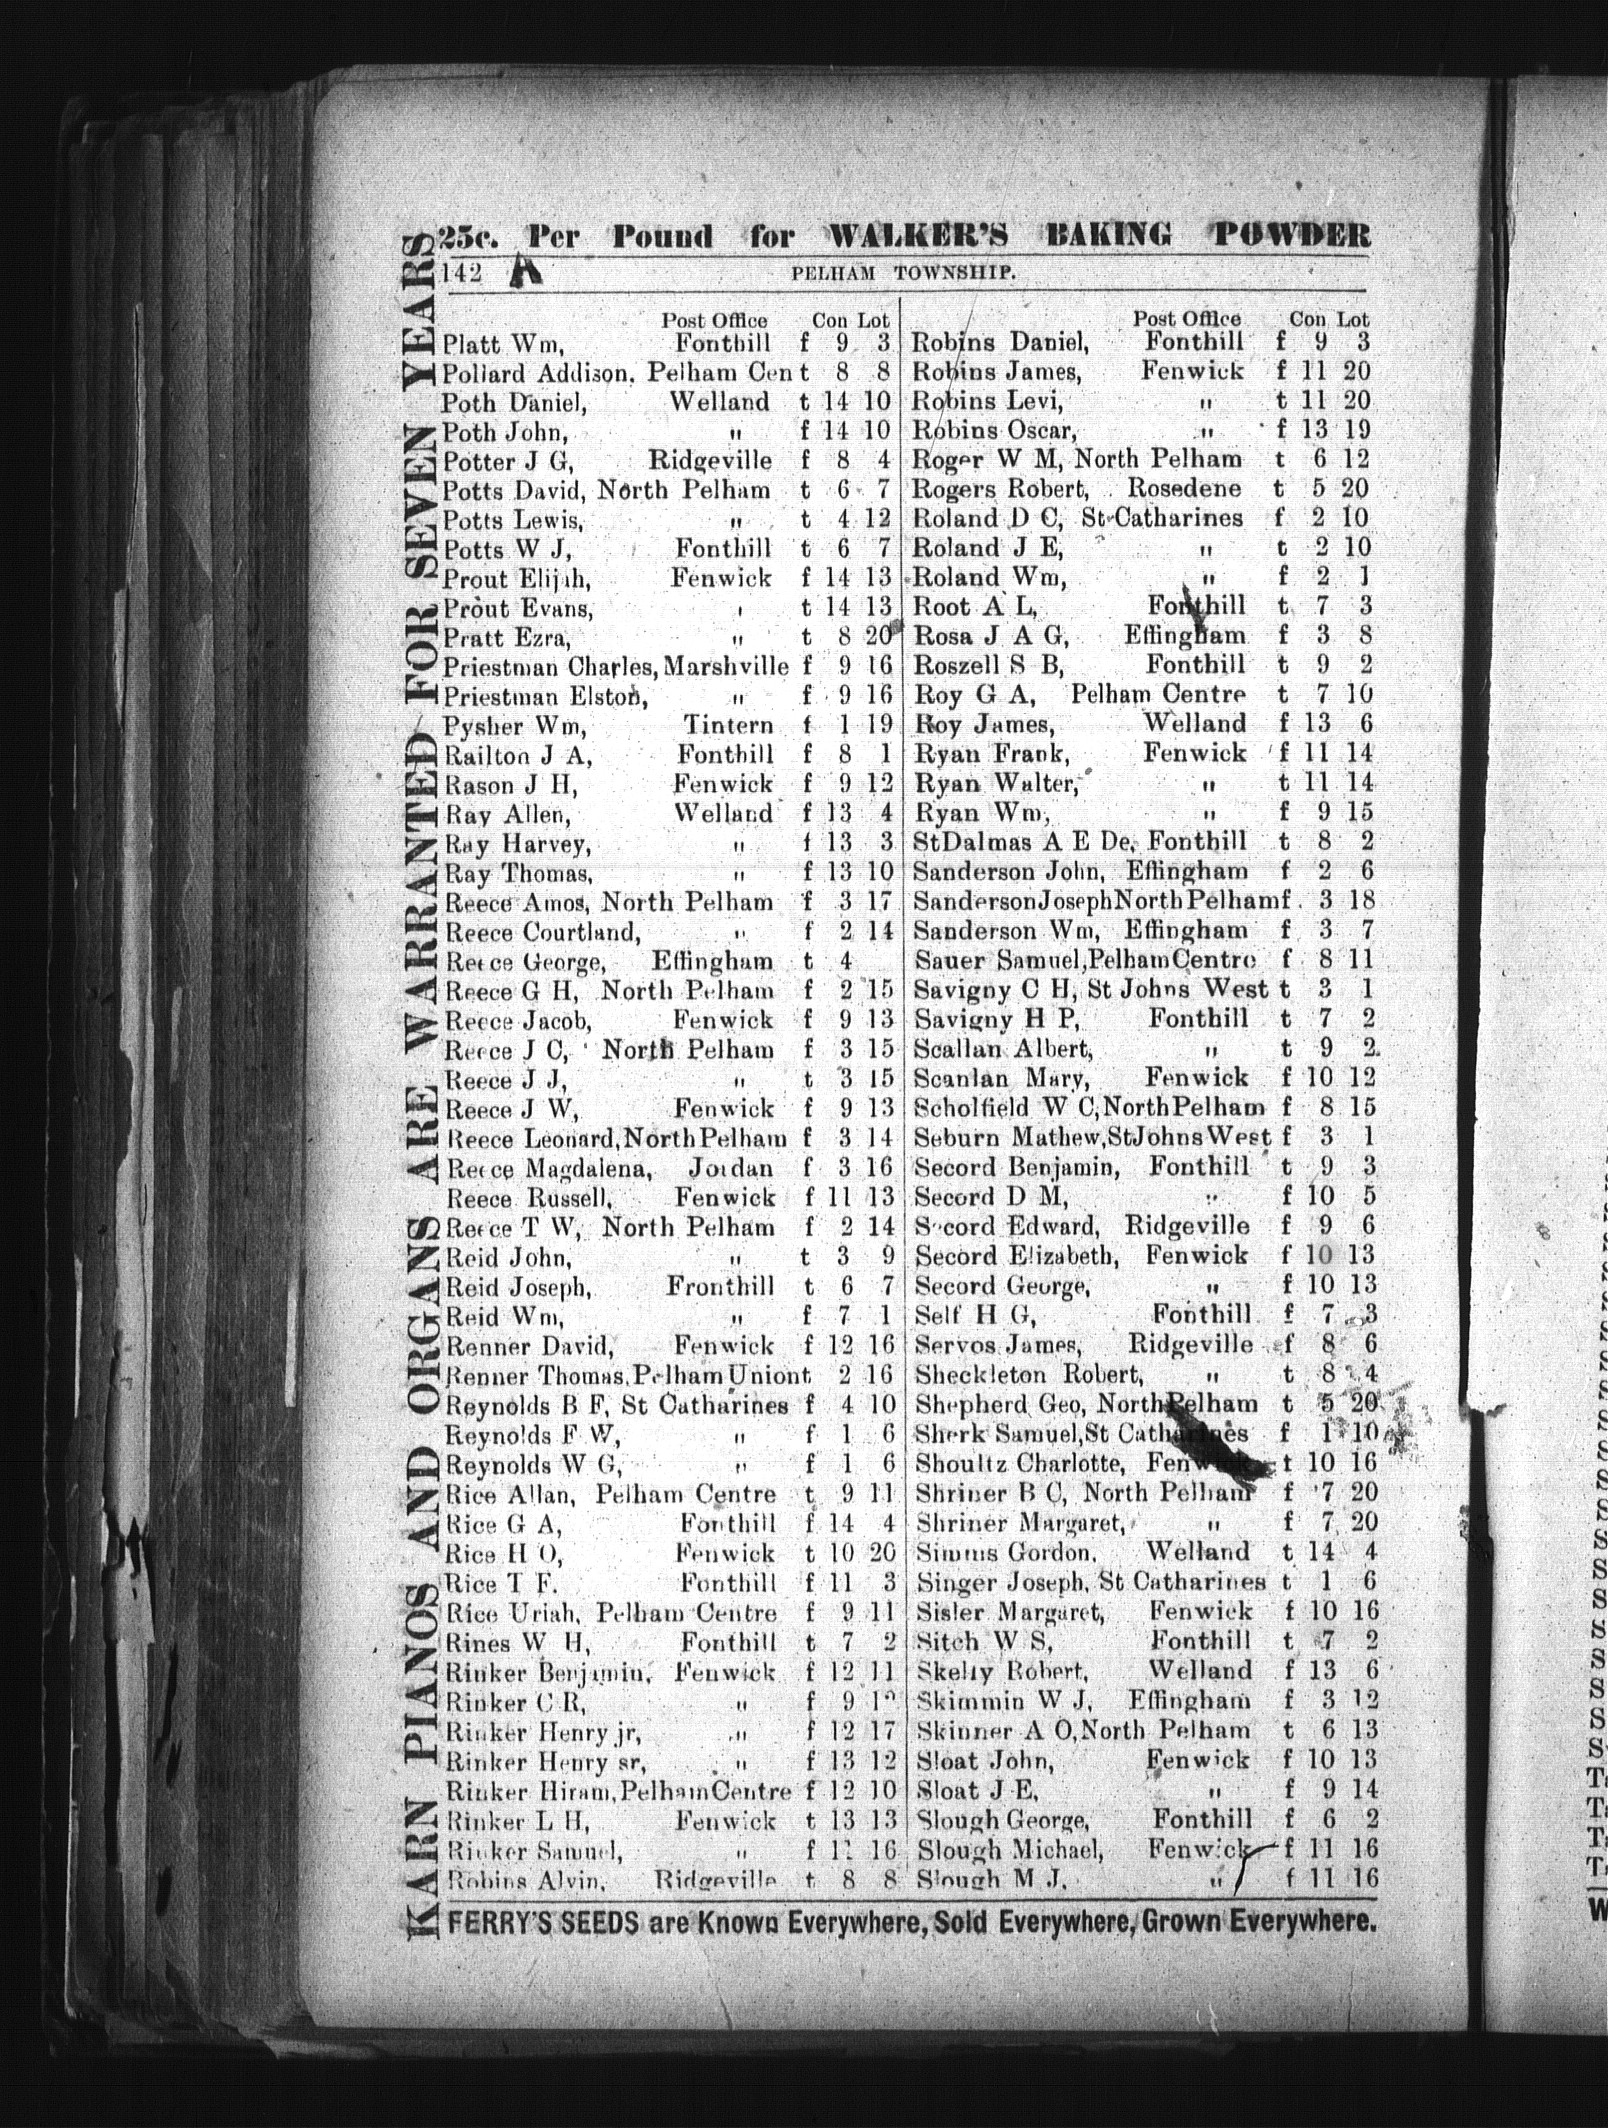 25c. Per Pound for WALKER'S BAKING POWDER
142 A PELHAM TOWNSHIP.
KARN PIANOS AND ORGANS ARE WARRANTED FOR SEVEN YEARS
Post Office Con Lot
Platt Wm, Fonthill f 9 3
Pollard Addison, Pelham Cen t 8 8
Poth Daniel, Welland t 14 10
Poth John, " f 14 10
Potter J G, Ridgeville f 8 4
Potts David, North Pelham t 6 7
Potts Lewis, " t 4 12
Potts W J, Fonthill t 6 7
Prout Elijah, Fenwick f 14 13
Prout Evans, ' t 14 13
Pratt Ezra, " t 8 20
Priestman Charles, Marshville f 9 16
Priestman Elston, " f 9 16
Pysher Wm, Tintern f 1 19
Railton J A, Fonthill f 8 1
Rason J H, Fenwick f 9 12
Ray Allen, Welland f 13 4
Ray Harvey, " f 13 3
Ray Thomas, " f 13 10
Reece Amos, North Pelham f 3 17
Reece Courtland, " f 2 14
Reece George, Effingham t 4
Reece G H, North Pelham f 2 15
Reece Jacob, Fenwick f 9 13
Reece J C, North Pelham f 3 15
Reece J J, " t 3 15
Reece J W, Fenwick f 9 13
Reece Leonard, North Pelham f 3 14
Reece Magdalena, Jordan f 3 16
Reece Russell, Fenwick f 11 13
Reece T W, North Pelham f 2 14
Reid John, " t 3 9
Reid Joseph, Fronthill t 6 7
Reid Wm, " f 7 1
Renner David, Fenwick f 12 16
Renner Thomas, Pelham Union t 2 16
Reynolds B F, St Catharines f 4 10
Reynolds F W, " f 1 6
Reynolds W G, " f 1 6
Rice Allan, Pelham Centre t 9 11
Rice G A, Fonthill f 14 4
Rice H O, Fenwick t 10 20
Rice T F. Fonthill f 11 3
Rice Uriah, Pelham Centre f 9 11
Rines W H, Fonthill t 7 2
Rinker Benjamin, Fenwick f 12 11
Rinker C R, " f 9
Rinker Henry jr, " f 12 17
Rinker Henry sr, " f 13 12
Rinker Hiram, Pelham Centre f 12 10
Rinker L H, Fenwick t 13 13
Rinker Samuel, " f 16
Robins Alvin, Ridgeville t 8 8
Post Office Con Lot
Robins Daniel, Fonthill f 9 3
Robins James, Fenwick f 11 20
Robins Levi, " t 11 20
Robins Oscar, " f 13 19
Roger W M, North Pelham t 6 12
Rogers Robert, Rosedene t 5 20
Roland D C, St Catharines f 2 10
Roland J E, " t 2 10
Roland Wm, " f 2 1
Root A L, Fonthill t 7 3
Rosa J A G, Effingham f 3 8
Roszell S B, Fonthill t 9 2
Roy G A, Pelham Centre t 7 10
Roy James, Welland f 13 6
Ryan Frank, Fenwick f 11 14
Ryan Walter, " t 11 14
Ryan Wm, " f 9 15
StDalmas A E De, Fonthill t 8 2
Sanderson John, Effingham f 2 6
Sanderson Joseph North Pelham f 3 18
Sanderson Wm, Effingham f 3 7
Sauer Samuel, Pelham Centre f 8 11
Savigny C H, St Johns West t 3 1
Savigny H P, Fonthill t 7 2
Scallan Albert, " t 9 2
Scanlan Mary, Fenwick f 10 12
Scholfield W C, North Pelham f 8 15
Seburn Mathew, St Johns West f 3 1
Secord Benjamin, Fonthill t 9 3
Secord D M, " f 10 5
Secord Edward, Ridgeville f 9 6
Secord Elizabeth, Fenwick f 10 13
Secord George, " f 10 13
Self H G, Fonthill f 7 3
Servos James, Ridgeville f 8 6
Sheckleton Robert, " t 8 4
Shepherd Geo, North Pelham t 5 20
Sherk Samuel, St Catharines f 1 10
Shoultz Charlotte, Fenwick t 10 16
Shriner B C, North Pelham f 7 20
Shriner Margaret, " f 7 20
Simms Gordon, Welland t 14 4
Singer Joseph, St Catharines t 1 6
Sisler Margaret, Fenwick f 10 16
Sitch W S, Fonthill t 7 2
Skelly Robert, Welland f 13 6
Skimmin W J, Effingham f 3 12
Skinner A O, North Pelham t 6 13
Sloat John, Fenwick f 10 13
Sloat J E, " f 9 14
Slough George, Fonthill f 6 2
Slough Michael, Fenwick f 11 16
Slough M J, " f 11 16
FERRY'S SEEDS are Known Everywhere, Sold Everywhere, Grown Everywhere.